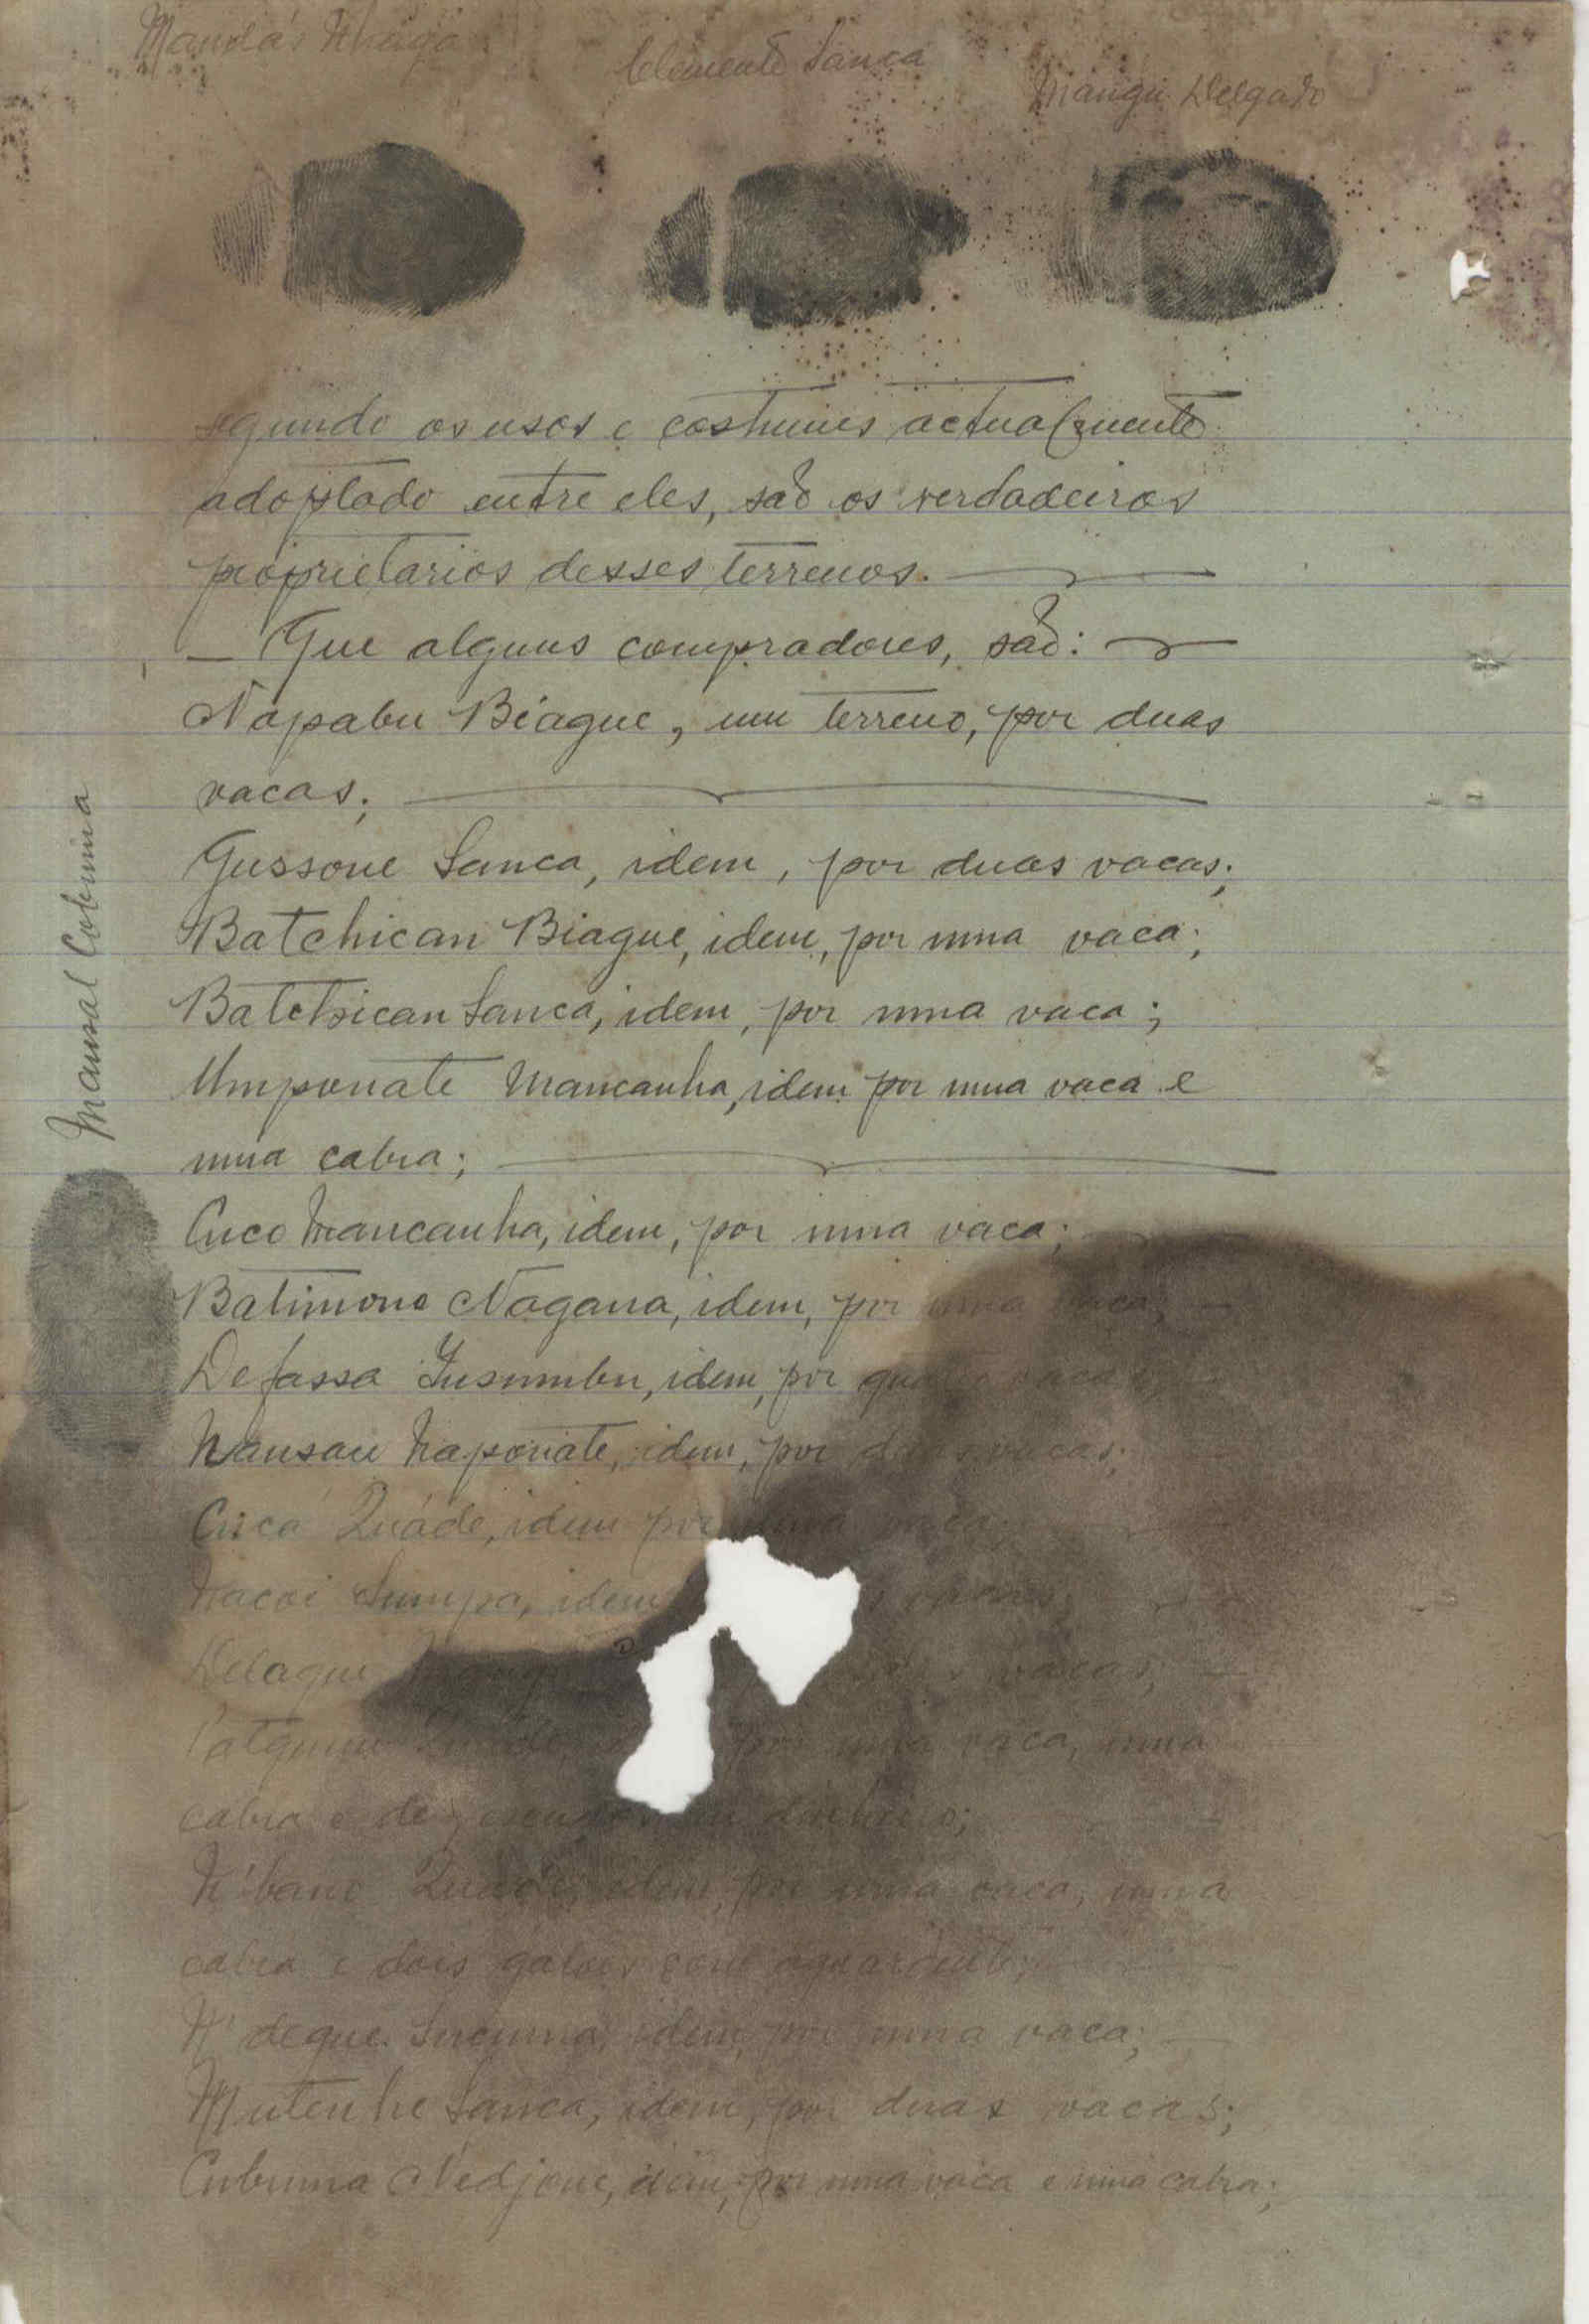 Clemente Sanca
Mangu Delgado
segundo os usos e costumes actualmente
adoptado entre eles, são os verdadeiros
proprietarios desses terrenos.
— Que alguns compradores, são:
Napabu Biague, um terreno, por duas
vacas;
Gussone Sanca, idem, por duas vacas;
Batchican Biague, idem, por uma vaca;
Batchican Sanca, idem, por uma vaca;
Umponate Mancanha, idem por uma vaca e
uma cabra;
Cuco Mancanha, idem, por uma vaca;
Batimone Nagana, idem, por uma vaca;
Defassa Insumbu, idem, por vacas;
Nansau Naponate, idem, por duas vacas;
Cucá Quáde, idem por uma vaca;
idem vacas;
Delaque vacas;
por uma vaca, uma
cabra e dez escudos em dinheiro;
N'bane Quade, idem, por uma vaca, uma
cabra e dois galões com aguardente;
N'degue idem, por uma vaca;
Mutenhe Sanca, idem, por duas vacas;
Cubuma Nedjone, idem, por uma vaca e uma cabra;
Mansal Cobuma